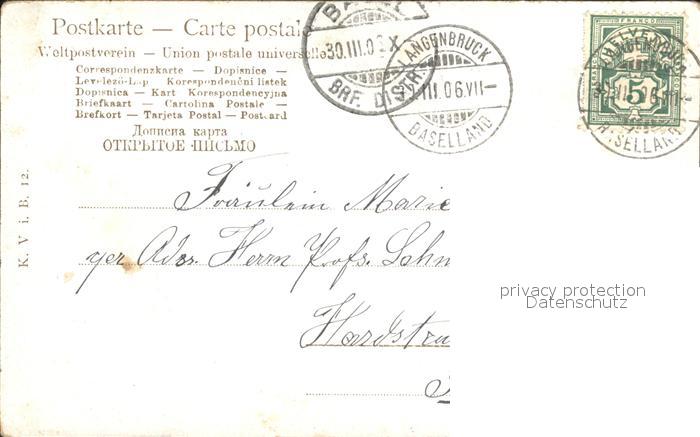 Postkarte — Carte postale
Weltpostverein — Union postale universelle
Correspondenzkarte — Dopisnice —
Levelező-Lap — Korespondenční listek
Dopisnica — Kart Korespondencyjna
Briefkaart — Cartolina Postale —
Brefkort — Tarjeta Postal — Postcard
Дописна карта
ОТКРЫТОЕ ПИСЬМО
BASEL
30.III.0 X
BRF. DISTR.
LANGENBRUCK
III.06.VII—
BASELLAND
FRANCO
5
BASELLAND
K. V. i. B. 12.
Fräulein Marie
per Adr. Herrn Profs.
Hardstra
privacy protection
Datenschutz